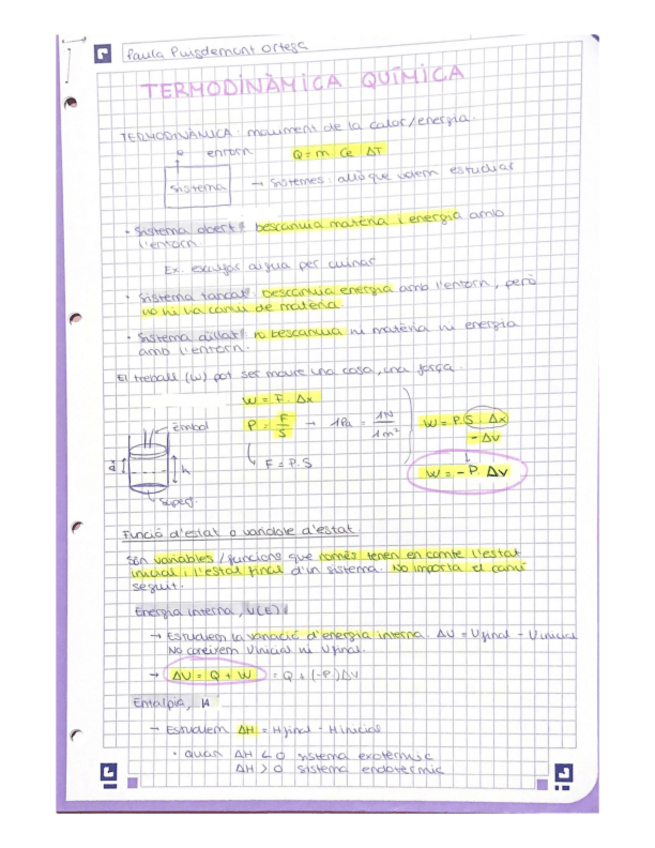 Paula Puigdemont Ortega
TERMODINÀMICA QUÍMICA
TERMODINÀMICA: moviment de la calor/energia.
entorn Q = m · Ce · ΔT
sistema → sistemes: allò que volem estudiar
• Sistema obert: bescanvia matèria i energia amb
l'entorn.
Ex. escalfar aigua per cuinar
• Sistema tancat: bescanvia energia amb l'entorn, però
no hi ha canvi de matèria
• Sistema aïllat: no bescanvia ni matèria ni energia
amb l'entorn.
El treball (W) pot ser moure una cosa, una força.
W = F · Δx
èmbol P = F/S → 1Pa = 1N/1m² W = P·S·Δx
- ΔV
h F = P·S
W = -P · ΔV
superf.
Funció d'estat o variable d'estat
Són variables/funcions que només tenen en comte l'estat
inicial i l'estat final d'un sistema. No importa el camí
seguit.
Energia interna, U(E)
→ Estudiem la variació d'energia interna. ΔU = Ufinal - Uinicial
No coneixem Uinicial ni Ufinal.
→ ΔU = Q + W = Q + (-P)ΔV
Entalpia, H
→ Estudiem ΔH = Hfinal - Hinicial
• quan ΔH < 0 sistema exotèrmic
ΔH > 0 sistema endotèrmic